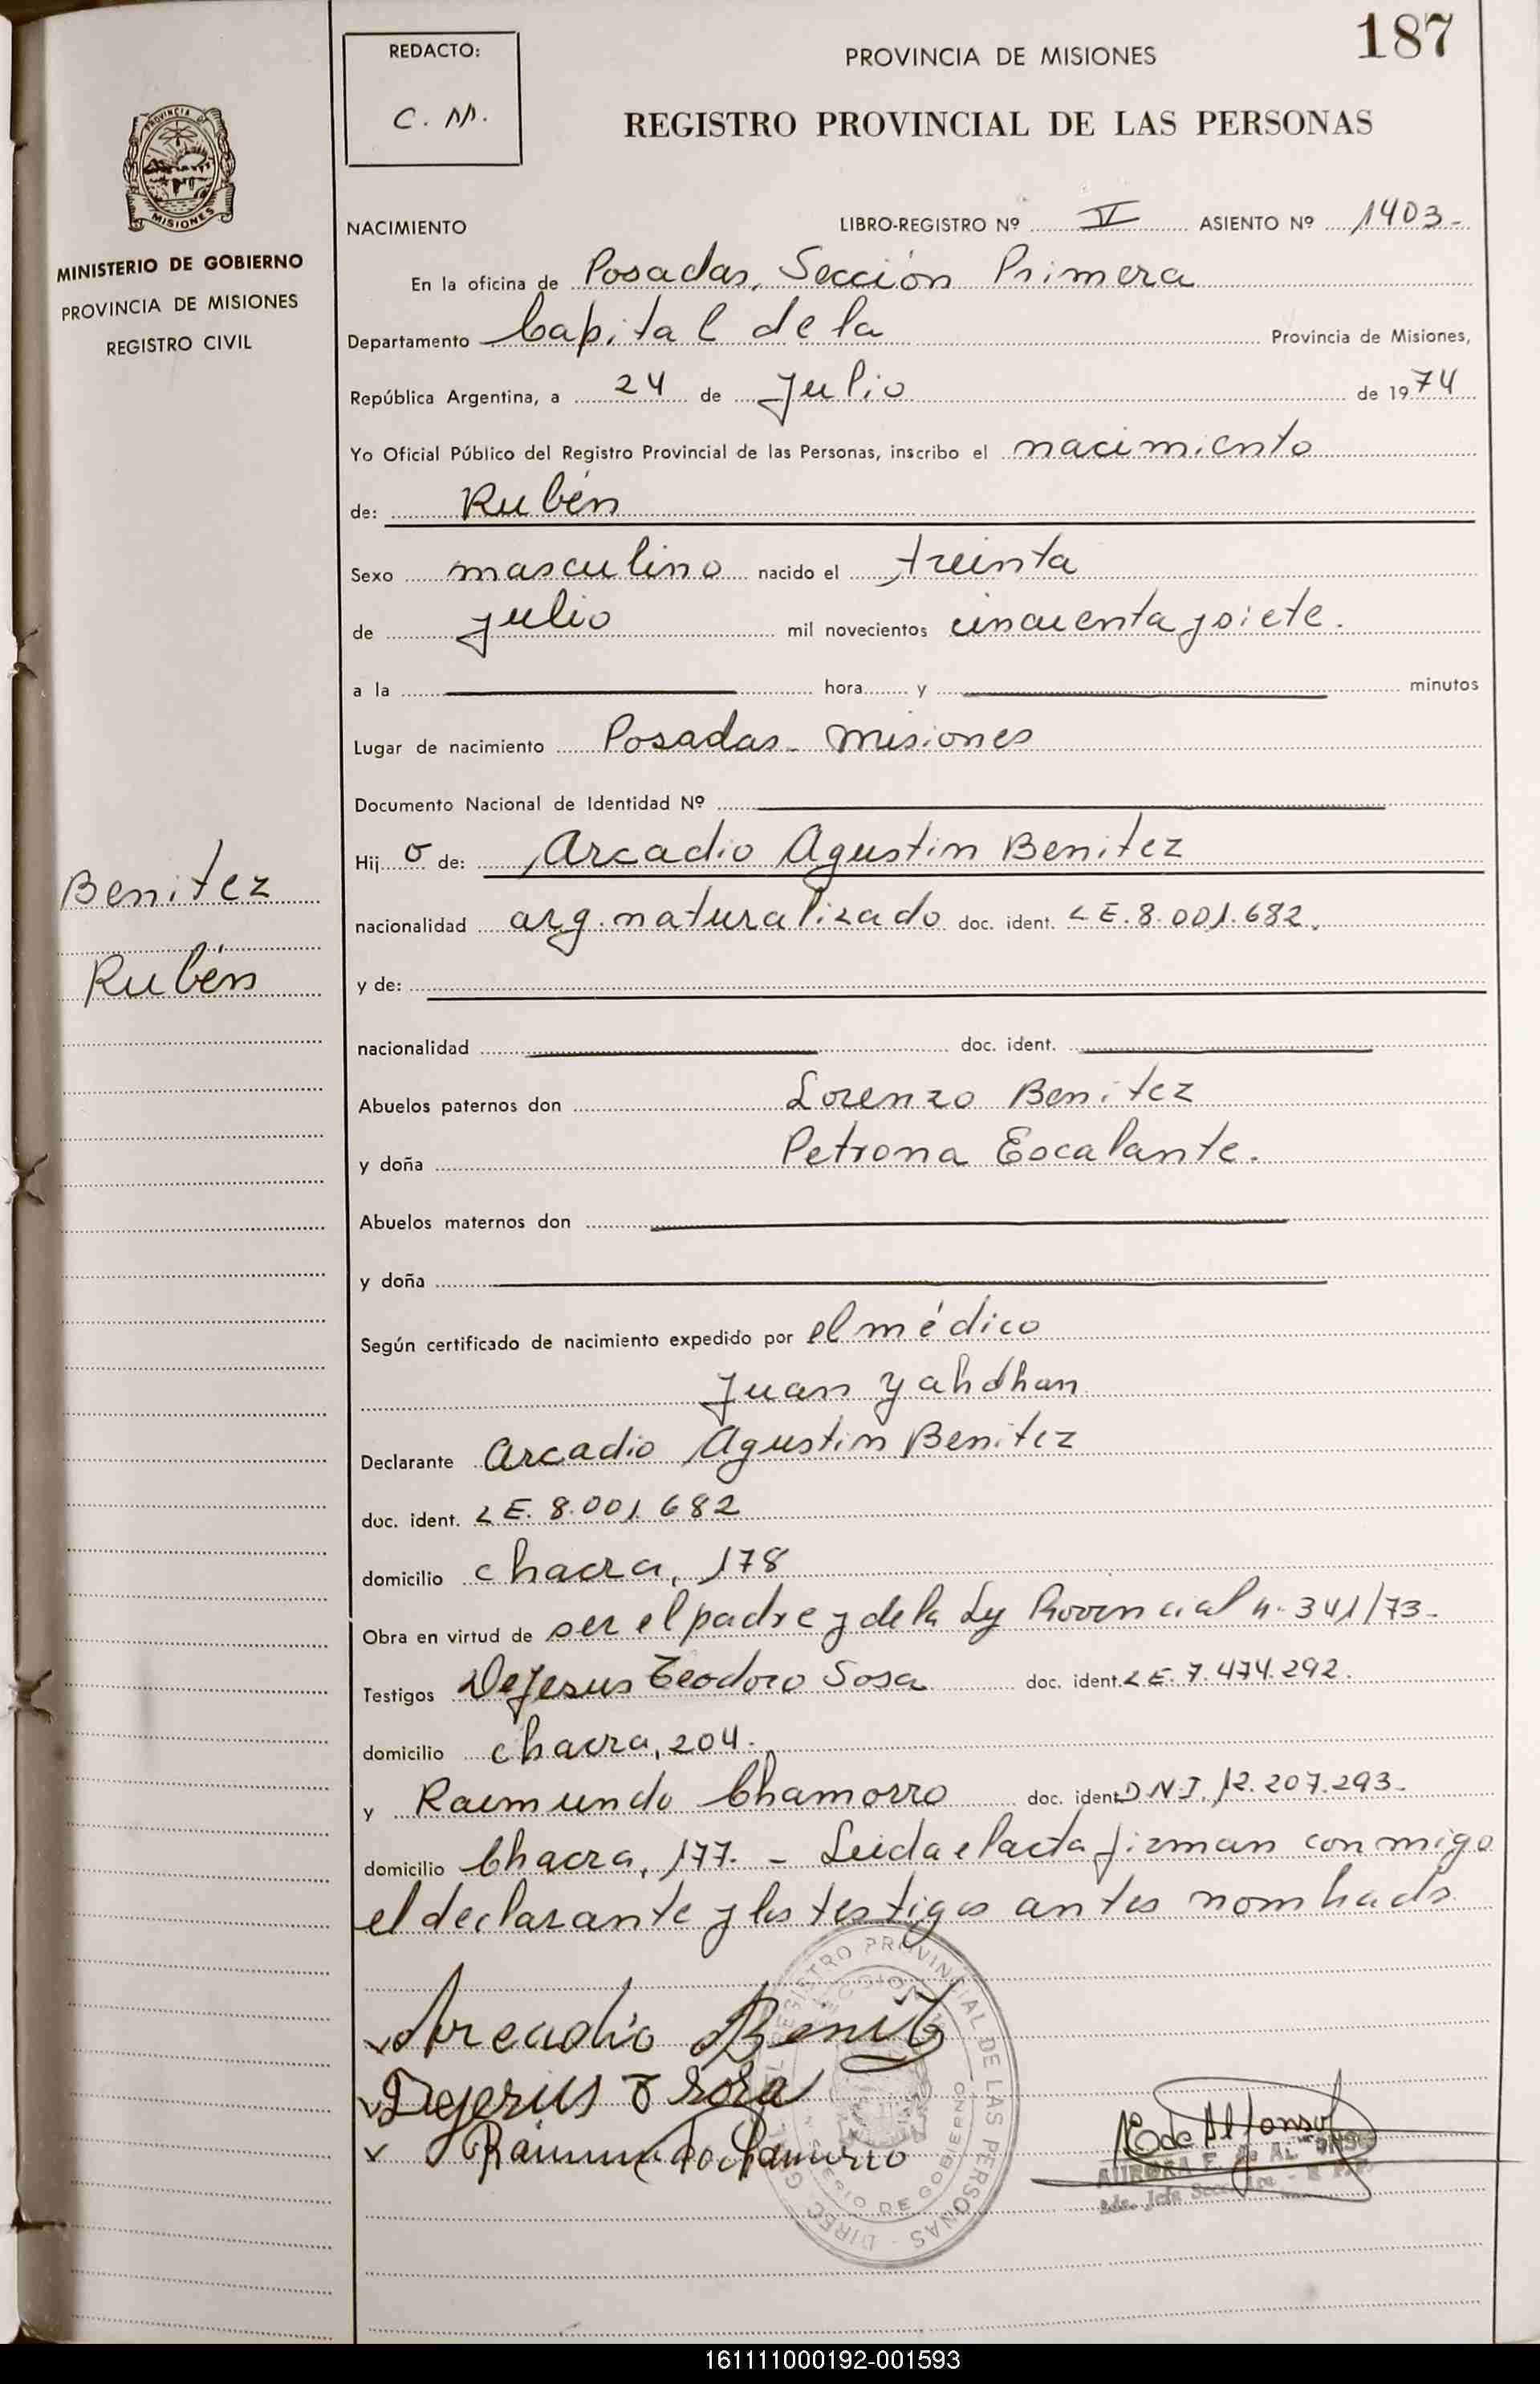 187
REDACTO:
C. M.
PROVINCIA DE MISIONES
REGISTRO PROVINCIAL DE LAS PERSONAS
PROVINCIA DE
MISIONES
MINISTERIO DE GOBIERNO
PROVINCIA DE MISIONES
REGISTRO CIVIL
NACIMIENTO LIBRO-REGISTRO Nº V ASIENTO Nº 1403-
En la oficina de Posadas, Sección Primera
Departamento Capital de la Provincia de Misiones,
República Argentina, a 24 de Julio de 1974
Yo Oficial Público del Registro Provincial de las Personas, inscribo el nacimiento
de: Rubén
Sexo masculino nacido el treinta
de julio mil novecientos cincuenta y siete.
a la hora y minutos
Lugar de nacimiento Posadas - Misiones
Documento Nacional de Identidad Nº
Hijo de: Arcadio Agustin Benitez
Benitez
nacionalidad arg. naturalizado doc. ident. LE. 8.001.682.
Rubén
y de:
nacionalidad doc. ident.
Abuelos paternos don Lorenzo Benitez
y doña Petrona Escalante.
Abuelos maternos don
y doña
Según certificado de nacimiento expedido por el médico
Juan Yahdhan
Declarante Arcadio Agustin Benitez
doc. ident. LE. 8.001.682
domicilio chacra, 178
Obra en virtud de ser el padre y de la Ley Provincial n. 341/73-
Testigos DeJesus Teodoro Sosa doc. ident. LE. 7.474.292.
domicilio chacra, 204.
y Raimundo Chamorro doc. ident. D N I. 12.207.293-
domicilio Chacra, 177. - Leida el acta firman conmigo
el declarante y los testigos antes nombrados
Arcadio Benitez
Dejesus T Sosa
Raimundo Chamorro
REGISTRO PROVINCIAL DE LAS PERSONAS
E de Alfonso
AURORA E. de ALFONSO
161111000192-001593